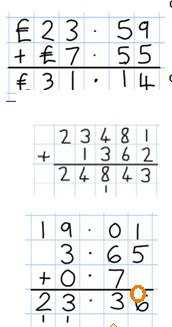 £23.59
+ £7.55
£31.14
23481
+ 1362
24843
1
19.01
3.65
+0.7
23.36
1 1